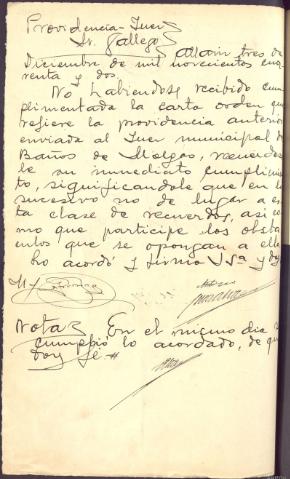 Providencia-Juez
Sr. Gallego
Allariz tres de
Diciembre de mil novecientos cua
renta y dos
No habiendose recibido cum
plimentada la carta orden que
refiere la providencia anterior
enviada al Juez municipal de
Baños de Molgas, recuerdes
le su inmediato cumplimien
to, significandole que en lo
sucesivo no de lugar a es
ta clase de recuerdos, asi co
mo que participe los obsta
culos que se opongan a ello
Lo acordó y firma S Sª y doy
Nota En el mismo dia se
cumplió lo acordado, de que
doy fé